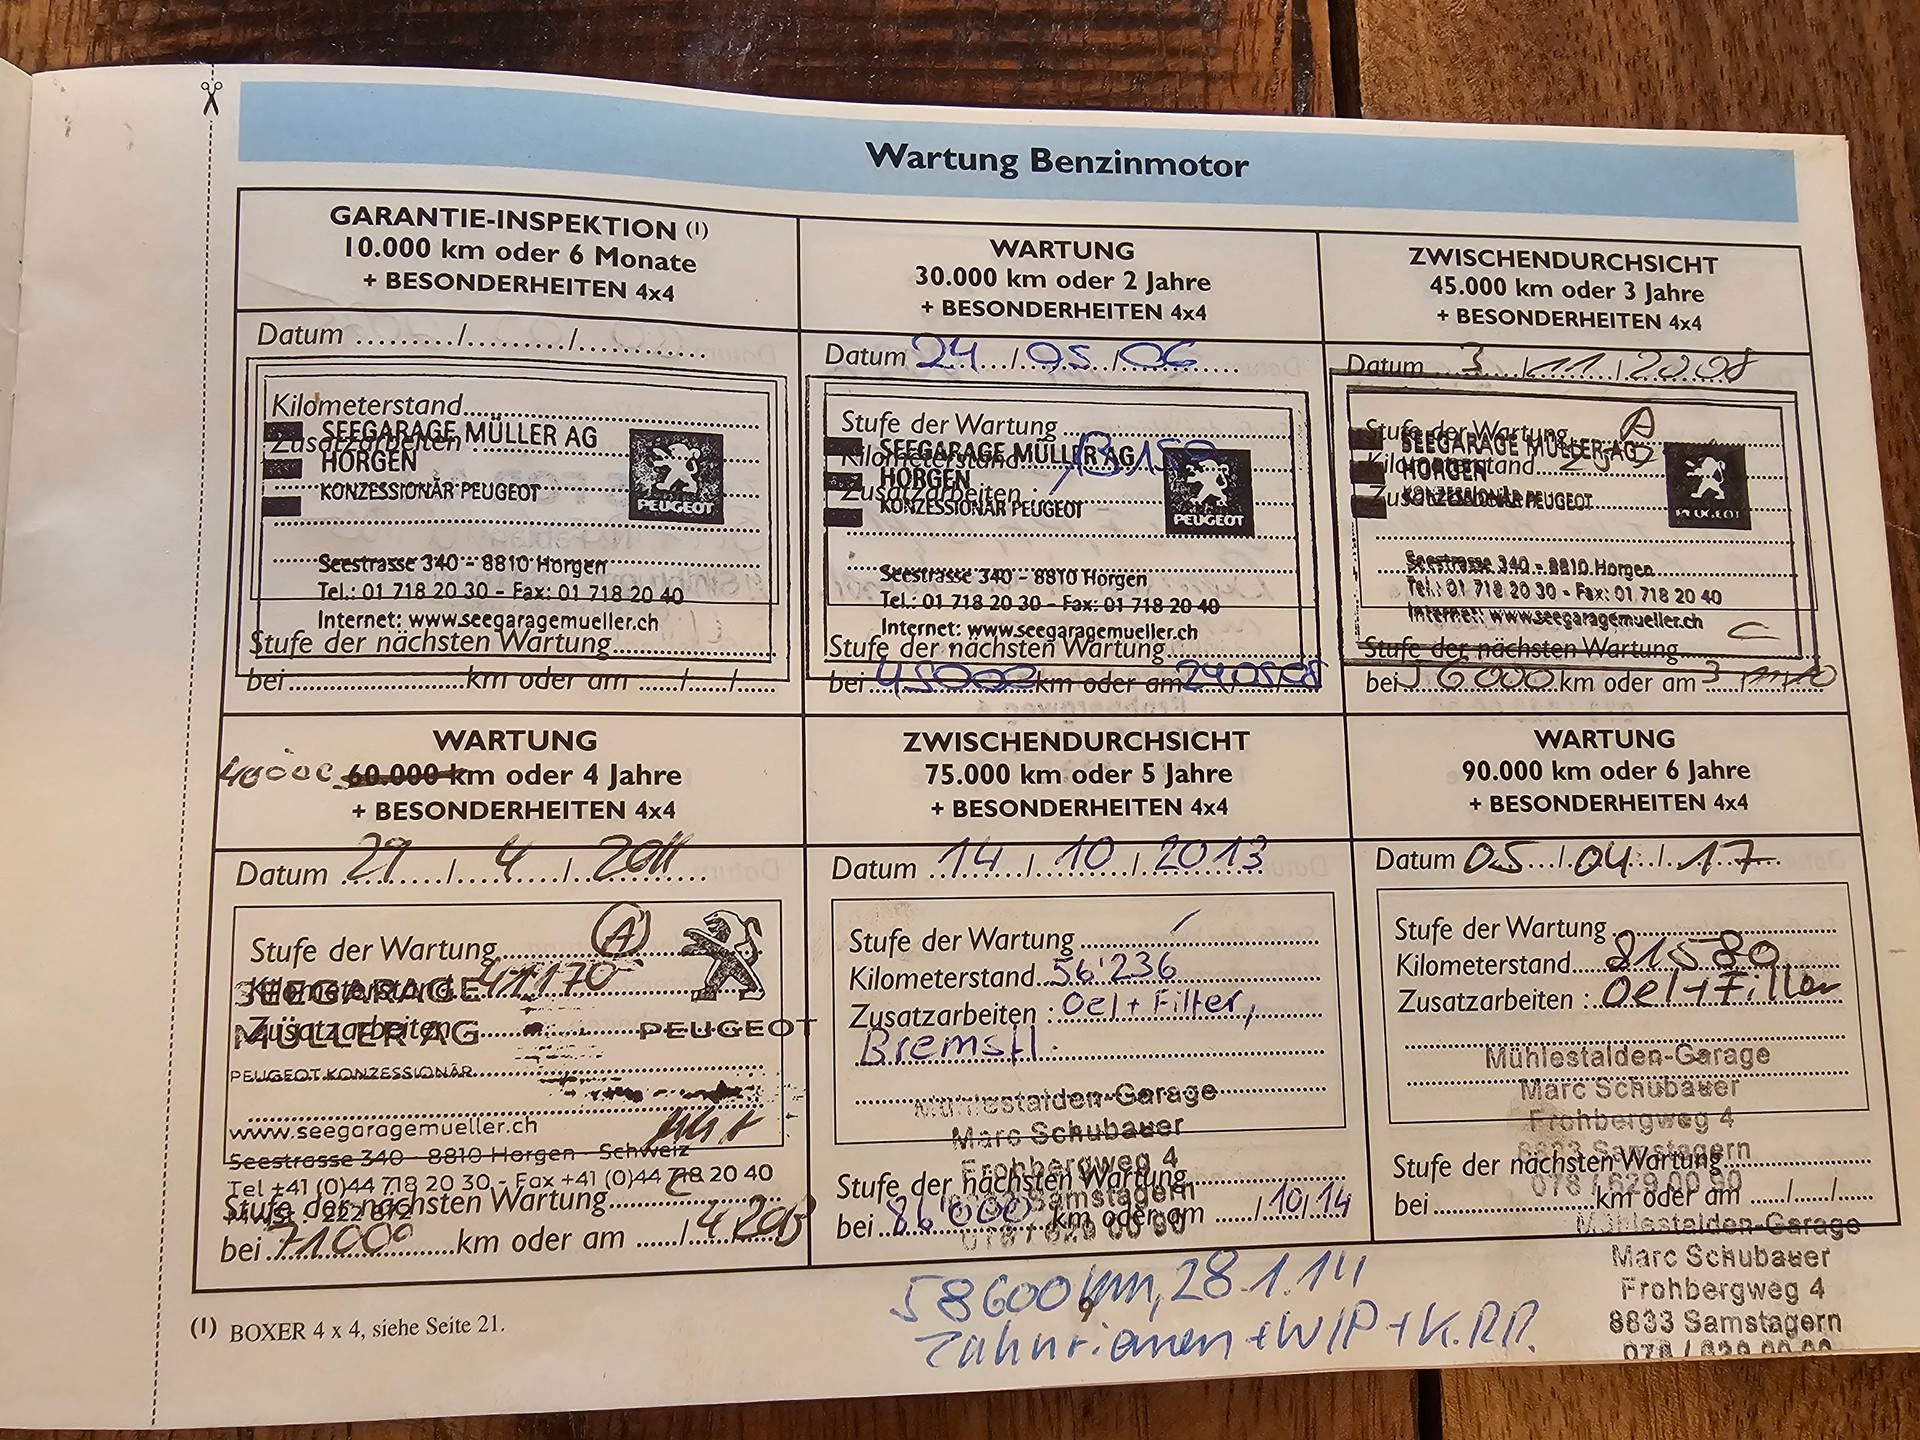 Wartung Benzinmotor
GARANTIE-INSPEKTION (1)
10.000 km oder 6 Monate
+ BESONDERHEITEN 4x4
Datum ........./........./............
Kilometerstand
Zusatzarbeiten
SEEGARAGE MÜLLER AG
HORGEN
KONZESSIONÄR PEUGEOT
PEUGEOT
Seestrasse 340 - 8810 Horgen
Tel.: 01 718 20 30 - Fax: 01 718 20 40
Internet: www.seegaragemueller.ch
Stufe der nächsten Wartung
bei ........ km oder am ....../....../......
WARTUNG
30.000 km oder 2 Jahre
+ BESONDERHEITEN 4x4
Datum 24 / 05 / 06
Stufe der Wartung
SEEGARAGE MÜLLER AG
Kilometerstand
HORGEN
Zusatzarbeiten
KONZESSIONÄR PEUGEOT
PEUGEOT
Seestrasse 340 - 8810 Horgen
Tel.: 01 718 20 30 - Fax: 01 718 20 40
Internet: www.seegaragemueller.ch
Stufe der nächsten Wartung
bei 45000 km oder am 24/05/08
ZWISCHENDURCHSICHT
45.000 km oder 3 Jahre
+ BESONDERHEITEN 4x4
Datum 3 / 11 / 2008
Stufe der Wartung A
SEEGARAGE MÜLLER AG
Kilometerstand
HORGEN
Zusatzarbeiten
KONZESSIONÄR PEUGEOT
PEUGEOT
Seestrasse 340 - 8810 Horgen
Tel.: 01 718 20 30 - Fax: 01 718 20 40
Internet: www.seegaragemueller.ch
Stufe der nächsten Wartung C
bei km oder am 3
WARTUNG
40000 60.000 km oder 4 Jahre
+ BESONDERHEITEN 4x4
Datum 29 / 4 / 2011
Stufe der Wartung A
Kilometerstand 41170
SEEGARAGE
Zusatzarbeiten
MÜLLER AG PEUGEOT
PEUGEOT KONZESSIONÄR
www.seegaragemueller.ch
Seestrasse 340 - 8810 Horgen - Schweiz
Tel +41 (0)44 718 20 30 - Fax +41 (0)44 718 20 40
Stufe der nächsten Wartung C
bei 71000 km oder am ....../4 2013
ZWISCHENDURCHSICHT
75.000 km oder 5 Jahre
+ BESONDERHEITEN 4x4
Datum 14 / 10 / 2013
Stufe der Wartung
Kilometerstand 56'236
Zusatzarbeiten : Oel + Filter,
Bremsfl.
Mühlestalden-Garage
Marc Schubauer
Frohbergweg 4
8833 Samstagern
Stufe der nächsten Wartung
078 / 629 00 90
bei 86'000 km oder am ....../10/14
WARTUNG
90.000 km oder 6 Jahre
+ BESONDERHEITEN 4x4
Datum 05 / 04 / 17
Stufe der Wartung
Kilometerstand 81580
Zusatzarbeiten : Oel + Filter
Mühlestalden-Garage
Marc Schubauer
Frohbergweg 4
8833 Samstagern
Stufe der nächsten Wartung
078 / 629 00 90
bei ........ km oder am ....../....../......
Mühlestalden-Garage
Marc Schubauer
Frohbergweg 4
8833 Samstagern
078 / 629 00 90
58600 km, 28.1.14
9
Zahnriemen + W/P + K.RR.
(1) BOXER 4 x 4, siehe Seite 21.